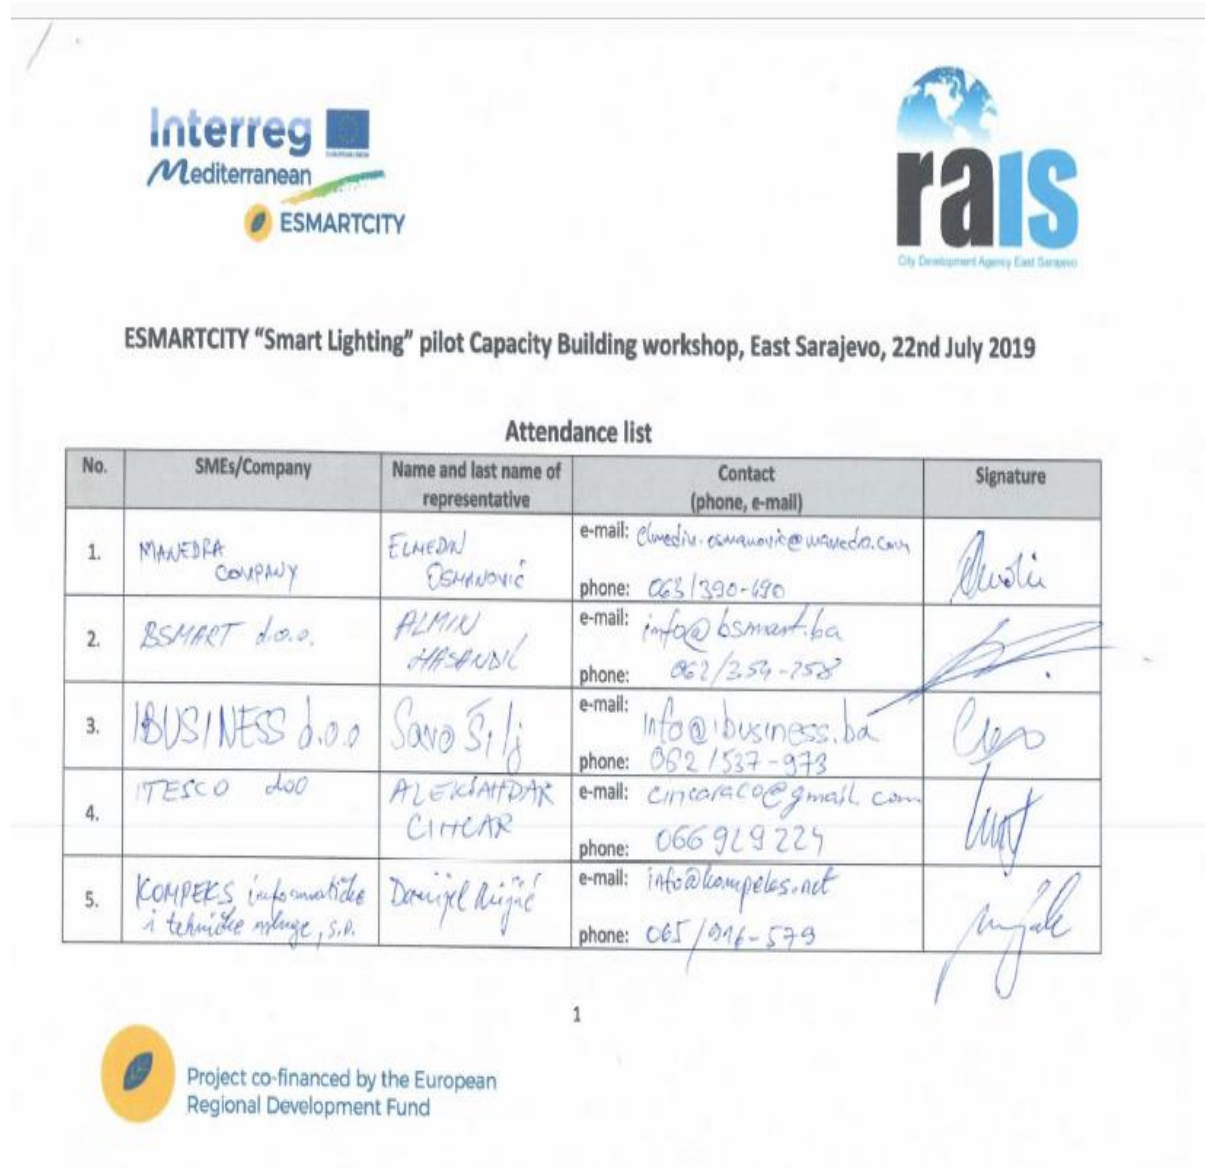 Interreg
EUROPEAN UNION
Mediterranean
ESMARTCITY
rais
City Development Agency East Sarajevo
ESMARTCITY “Smart Lighting” pilot Capacity Building workshop, East Sarajevo, 22nd July 2019
Attendance list
No.
SMEs/Company
Name and last name of
representative
Contact
(phone, e-mail)
Signature
1.
MANEDRA
COMPANY
ELMEDIN
OSMANOVIĆ
e-mail: elmedin.osmanovic@manedra.com
phone: 063/390-690
2.
BSMART d.o.o.
ALMIN
e-mail: info@bsmart.ba
phone: 062/354-258
3.
IBUSINESS d.o.o
Savo Šilj
e-mail: info@ibusiness.ba
phone: 062/537-973
4.
ITESCO doo
ALEKSANDAR
CINCAR
e-mail: cincaraco@gmail.com
phone: 066 929 224
5.
KOMPEKS informatičke
i tehničke usluge, s.p.
Danijel
e-mail: info@kompeks.net
phone: 065/916-579
1
Project co-financed by the European
Regional Development Fund